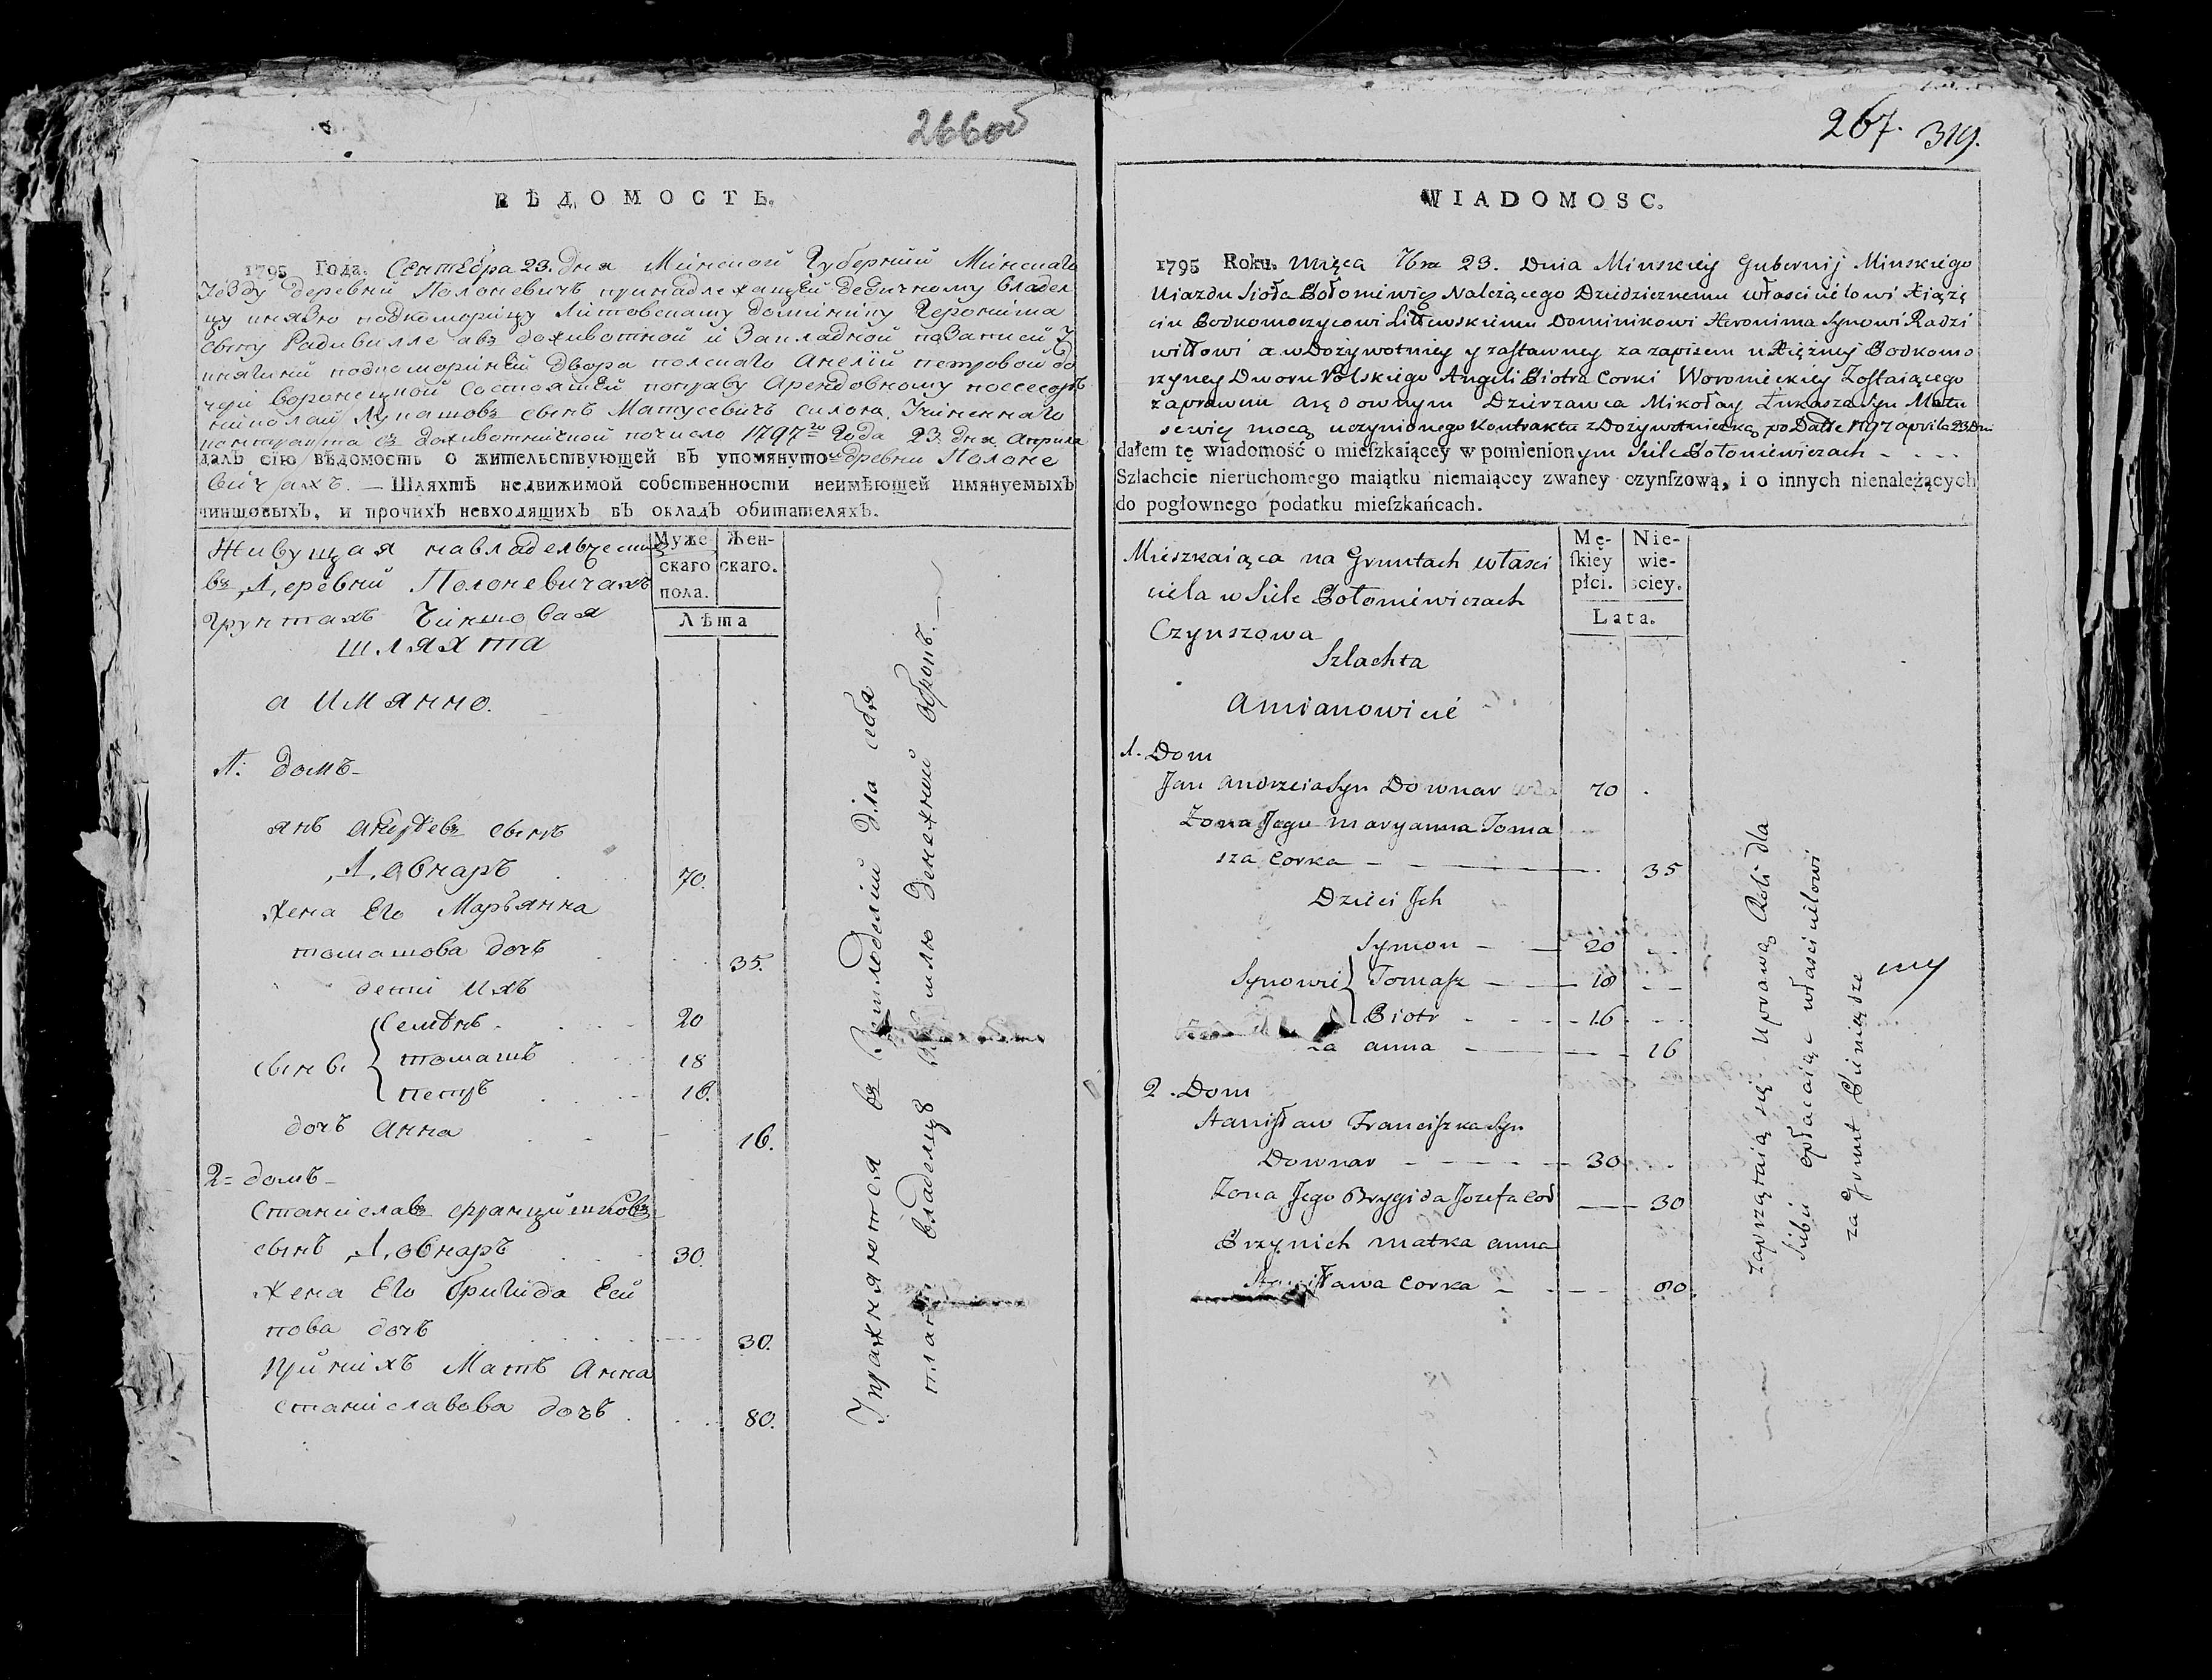 266об
ВѢДОМОСТЬ.
1795 Года. Сентебра 23. дня Минской Губернии Минскаго
Уезду деревни Полоневичъ принадлежащей дедичному владел
цу князю подкоморицу Литовскому Доминику Геронима
сыну Радивилле а въ доживотной и Закладной по Записи У
княгини подкомориней двора полскаго Анелии петровой до
чери Воронецкой Состоящей по праву Арендовному поссесоръ
Николай Лукашовъ сынъ Матусевичъ силою Учиненнаго
контракта съ Доживотничкой по число 1797го Года 23 дня Априля
далъ сїю вѣдомость о жительствующей въ упомянутой древни Полоне
вичахъ. — Шляхтѣ недвижимой собственности неимѣющей имянуемыхъ
чиншовыхъ, и прочихъ невходящихъ въ окладъ обитателяхъ.
Муже
скаго
пола.
Жен-
скаго.
Лѣта
Живущая на владельческих
въ Деревни Полоневичахъ
грунтахъ Чиншовая
шляхта
а имянно.
1: домъ-
янъ андреевъ сынъ
Довнаръ 70.
жена Его Марьянна
томашова дочь 35.
дети ихъ
сынове { Семенъ 20
томашъ 18
петръ 16.
дочь Анна 16.
2= домъ-
Станиславъ францишковъ
сынъ Довнаръ 30.
жена Его Бригида Еси
пова дочь 30.
При нихъ Мать Анна
станиславова дочь 80.
Упражняются въ Земледелии для себя
платя владелцу за землю денежной оброкъ.
267. 319.
WIADOMOSC.
1795 Roku. Mięca 7bra 23. Dnia Minskiey Gubernij Minskiego
Ujazdu Sioła Połoniewicz Należącego Dziedzicznemu własicielowi Xiąźę
ciu Podkomorzycowi Littewskiemu Dominikowi Heronima Synowi Radzi
wiłłowi a w Dożywotniey y zastawney za zapisem u Xiężney Podkomo
rzyney Dworu Polskiego Angeli Piotra Corki Woronieckiey Zostaiącego
za prawem Arędownym Dzierzawca Mikołay Łukasza Syn Matu
sewicz mocą uczynionego Kontraktu z Dożywotniczką po Datte 1797 aprila 23 Dn
dałem tę wiadomość o mieſzkaiącey w pomienionym Siele Połoniewiczach - - - -
Szlachcie nieruchomego maiątku niemaiącey zwaney czynſzową, i o innych nienależących
do pogłownego podatku mieſzkańcach.
Mę-
ſkiey
płci.
Nie-
wie-
sciey.
Lata.
Mieszkaiąca na Gruntach własci
ciela w Siele Połoniewiczach
Czynszowa
Szlachta
Amianowicie
1. Dom
Jan Andrzeia Syn Downar 70
Zona Jego Maryanna Toma
sza Corka 35
Dzieci Jch
Symon 20
Synowie { Tomasz 18
Piotr 16
anna 16
2. Dom
Stanisław Franciszka Syn
Downar 30
Zona Jego Brygida Jozefa Cor 30
Przynich matka anna
Stanisława Corka 80.
Zaprzątaią się Uprawą Roli dla
Siebie opłacaiąc własicielowi
za Grunt Pieniądze